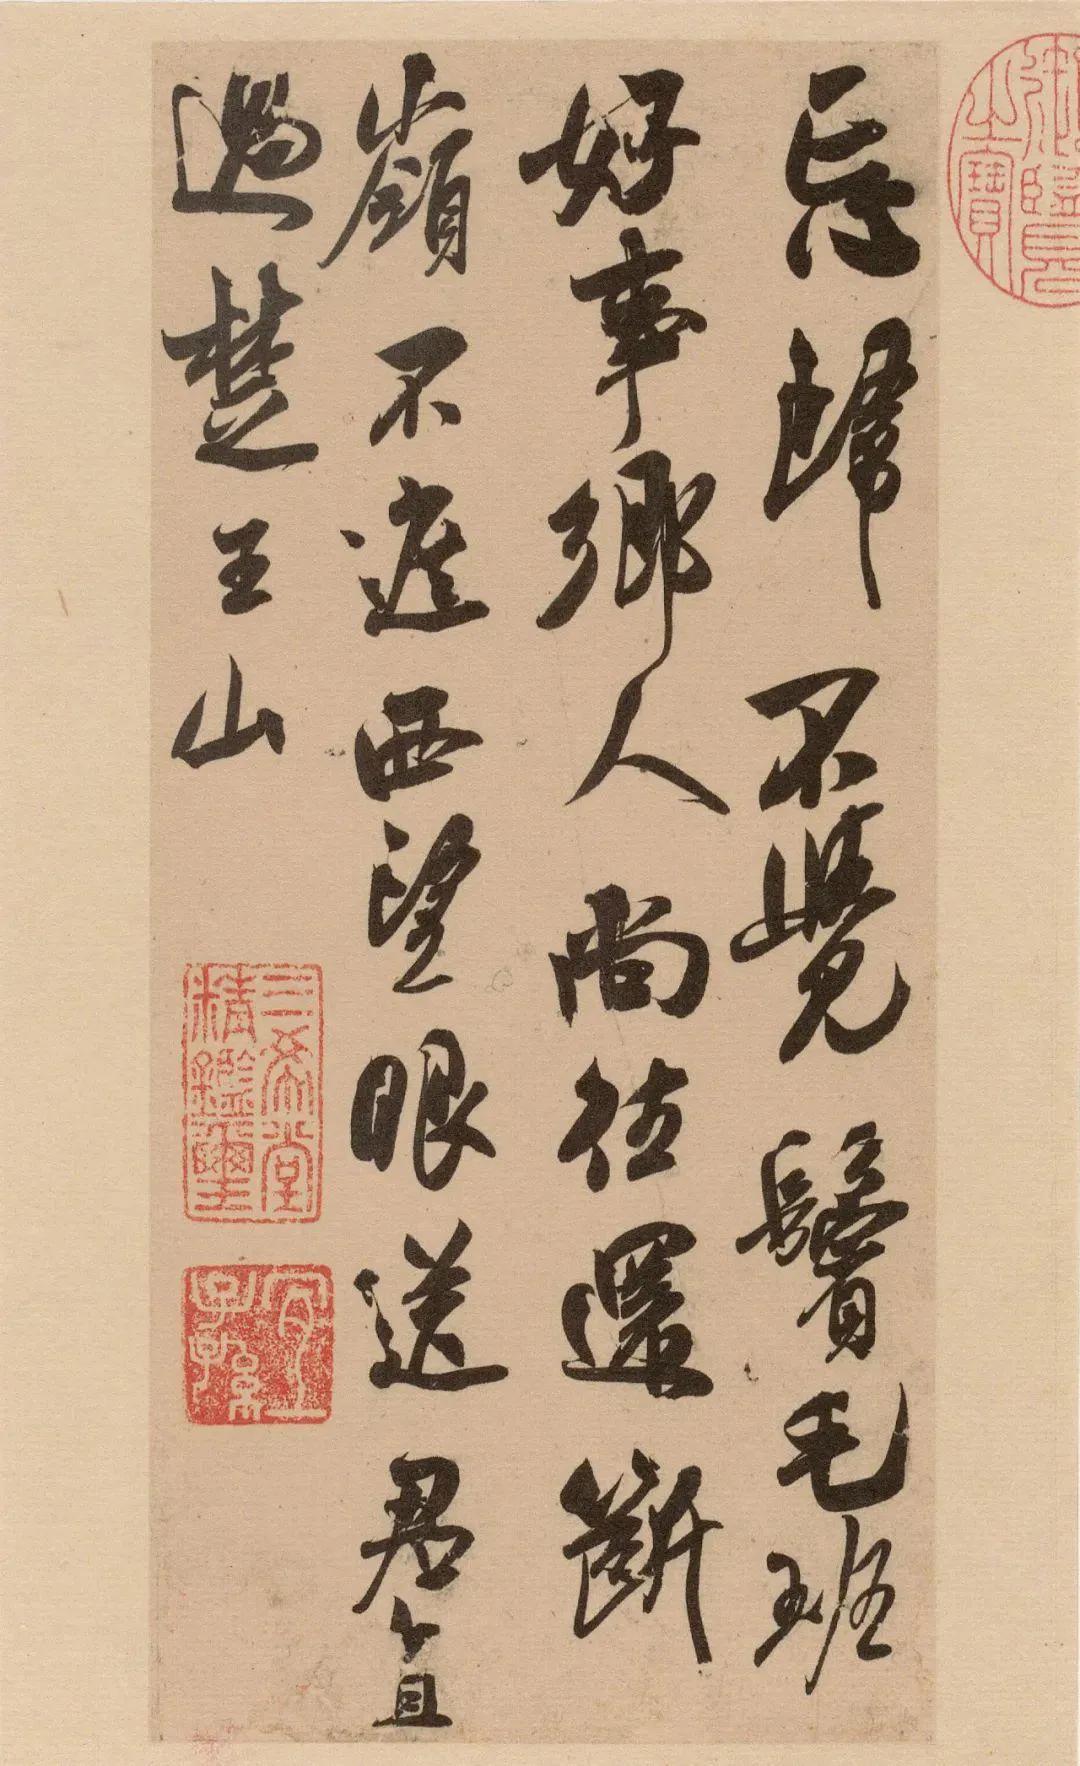 忘歸不覺鬢毛班
好事鄉人尚往還斷
嶺不遮西望眼送君直
過楚王山
御覽之寶
三希堂精鑑璽
宜子孫